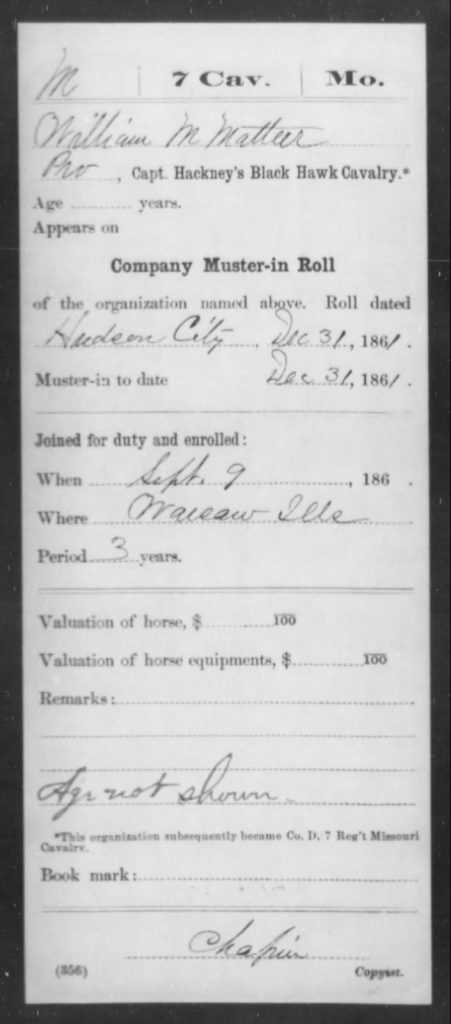 M | 7 Cav. | Mo.
William M Matteer
Pvo, Capt. Hackney's Black Hawk Cavalry.*
Age ............ years.
Appears on
Company Muster-in Roll
of the organization named above. Roll dated
Hudson City, Dec 31, 1861.
Muster-in to date Dec 31, 1861.
Joined for duty and enrolled:
When Sept. 9, 186 .
Where Warsaw Ills
Period 3 years.
Valuation of horse, $ ............ 100
Valuation of horse equipments, $ ............ 100
Remarks:
Age not shown.
*This organization subsequently became Co. D, 7 Reg't Missouri
Cavalry.
Book mark:
Chapin
(356) Copyist.